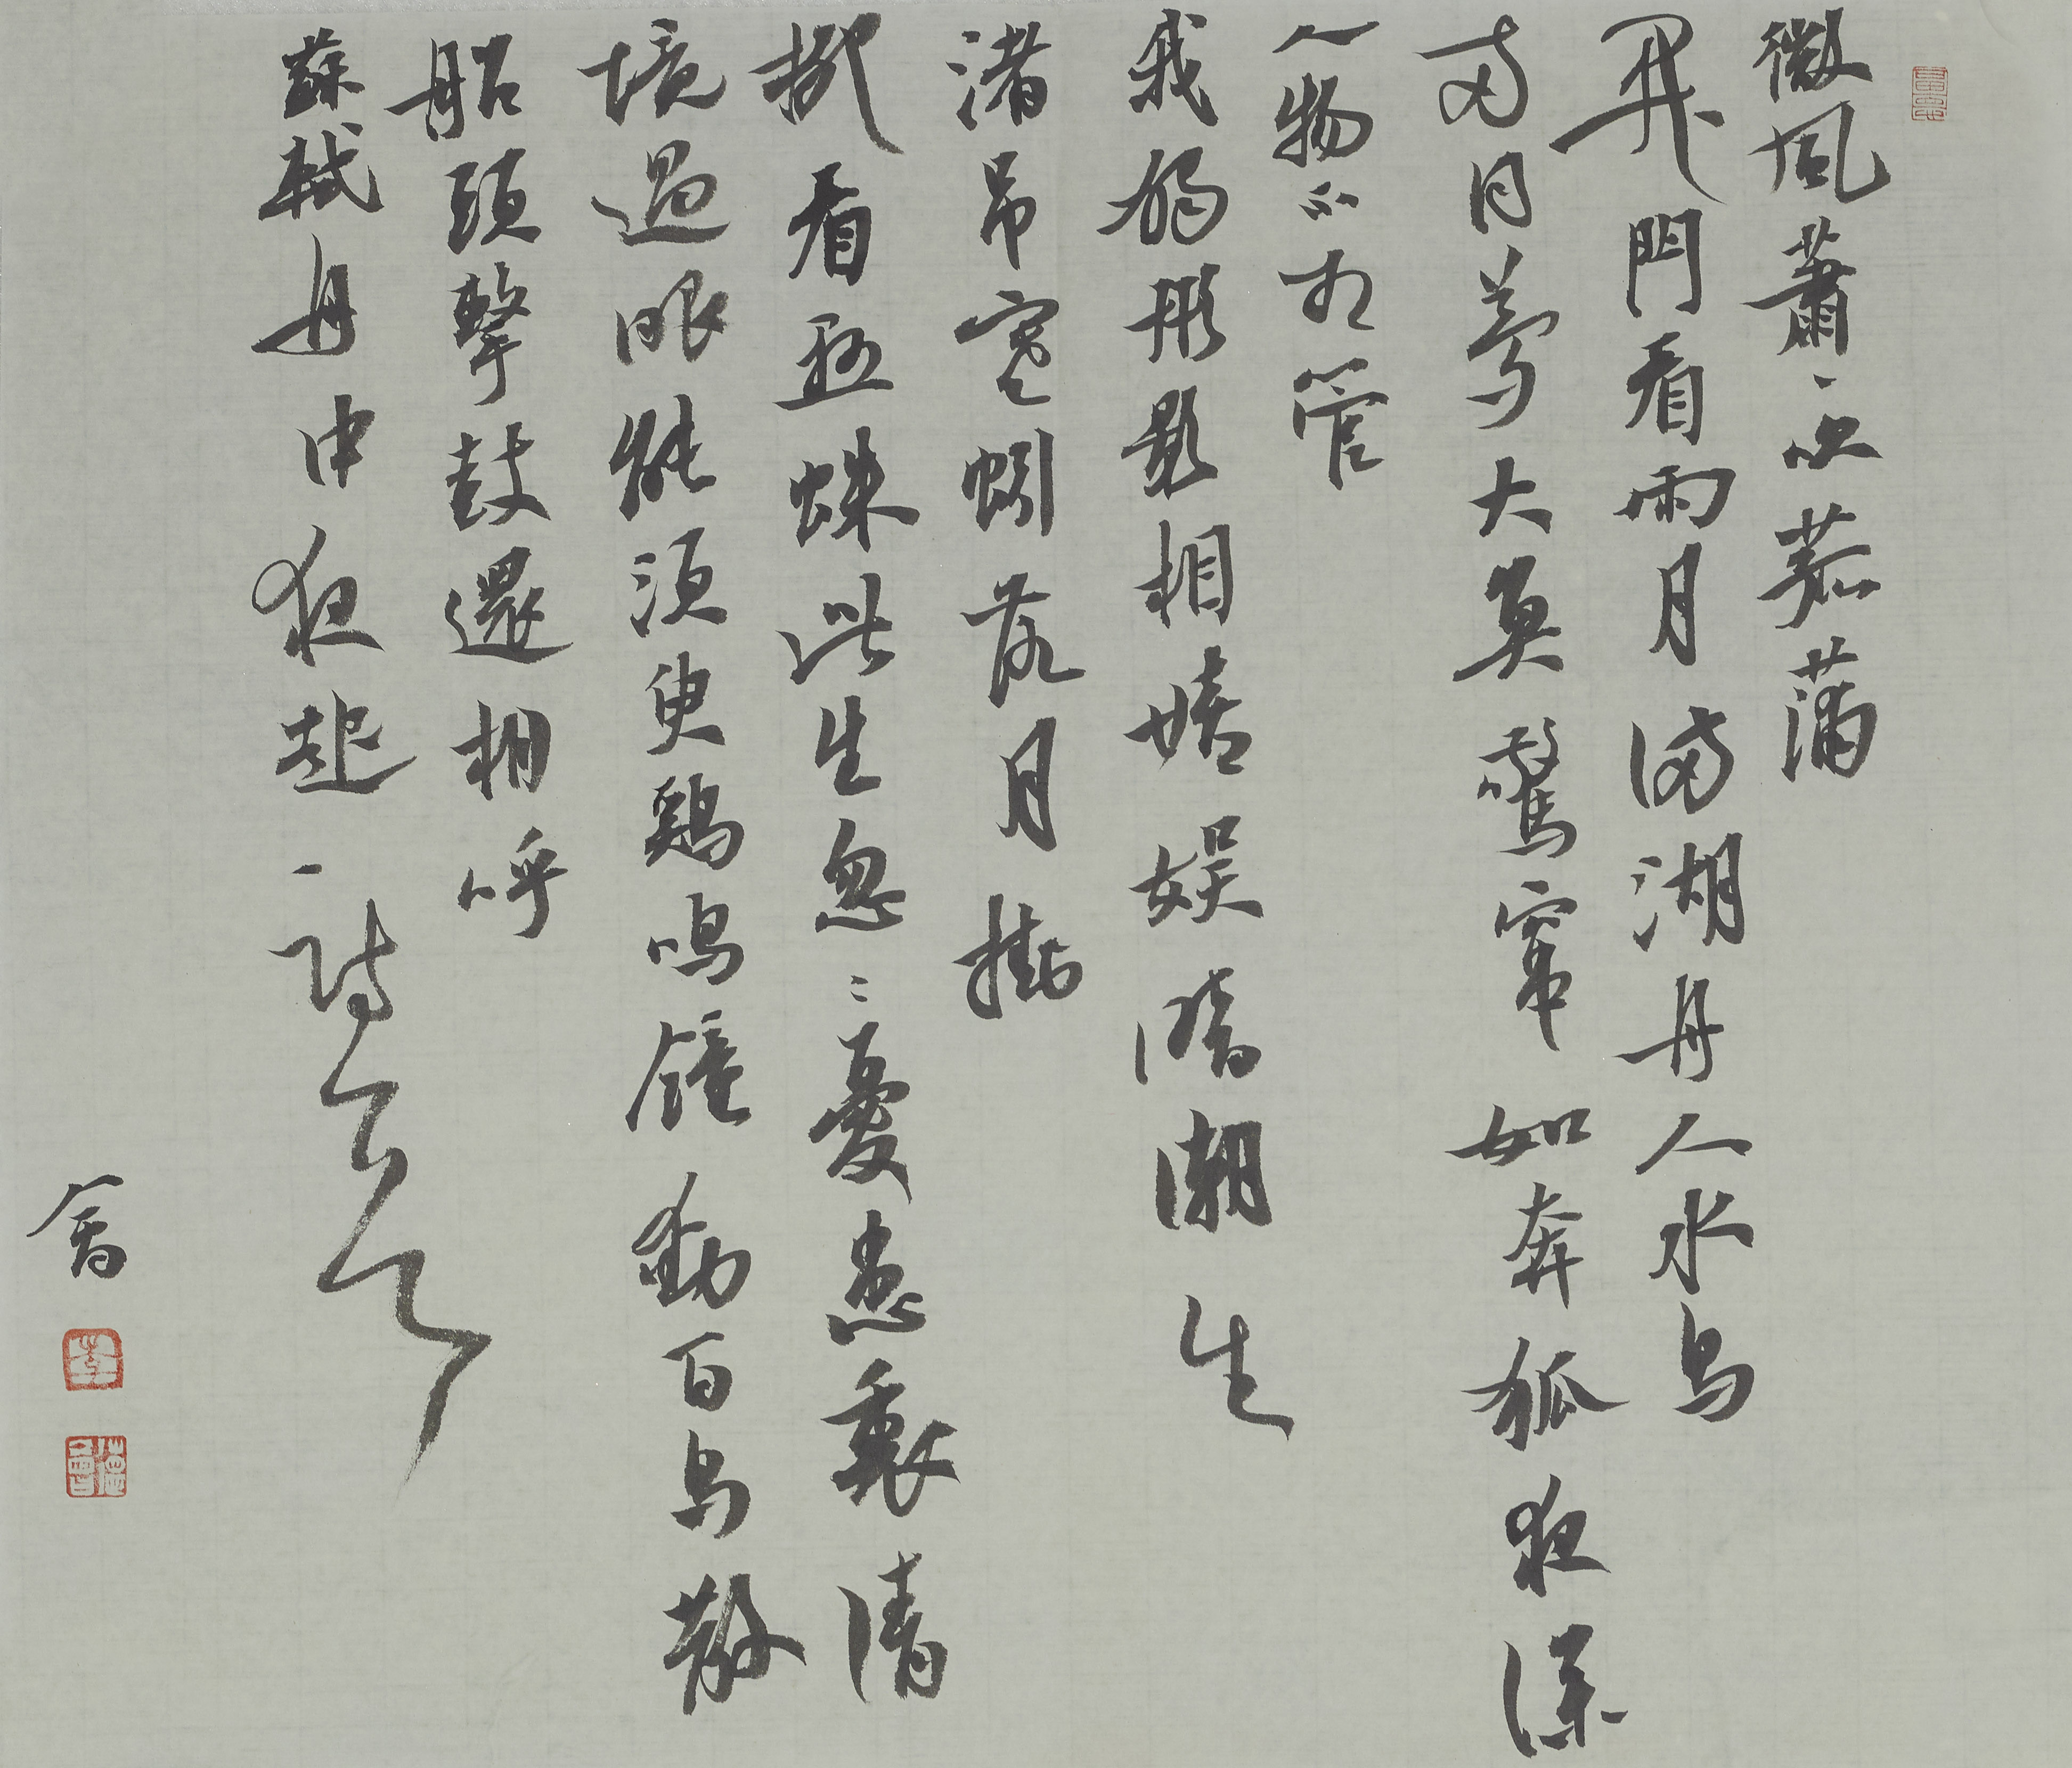 微風蕭〻吹菰蒲
開門看雨月滿湖舟人水鳥
兩同夢大魚驚竄如奔狐夜深
人物不相管
我獨形影相嬉娛暗潮生
渚吊寒蚓落月掛
柳看懸蛛此生忽〻憂患裏清
境過眼能須臾鷄鳴鐘動百鳥散
船頭擊鼓還相呼
蘇軾舟中夜起一詩
會
李